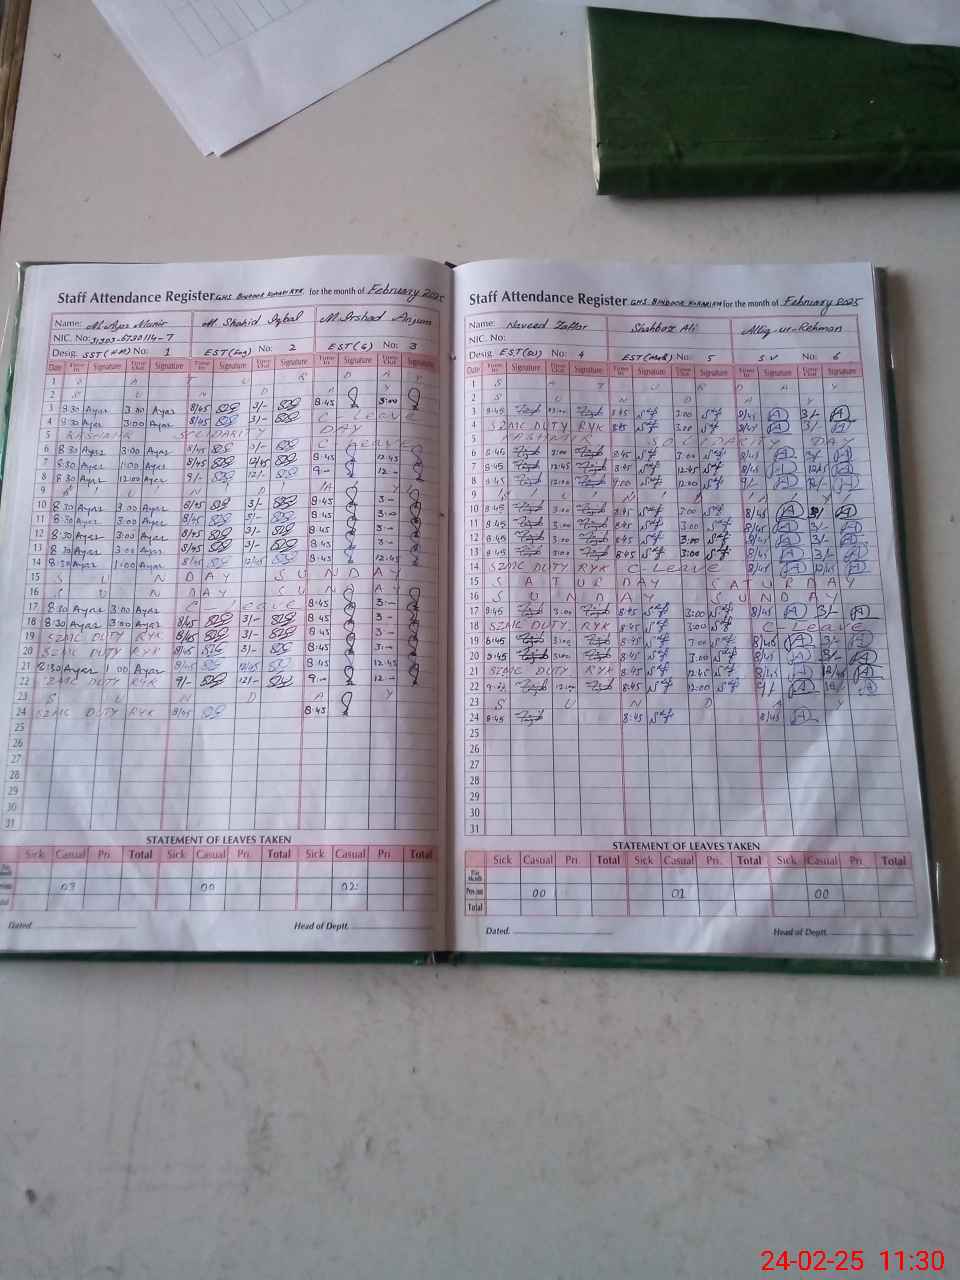 Staff Attendance Register GHS for the month of February 2025
Name: M. Ayaz Munir M. Shahid Iqbal M. Irshad Anjum
NIC. No: 31303-6730114-7
Desig. SST(HM) No: 1 EST(Eng) No: 2 EST(G) No: 3
Date Time In Signature Time Out Signature Time In Signature Time Out Signature Time In Signature Time Out Signature
1 S A T U R D A Y
2 S U N D A Y
3 8:30 Ayaz 3:00 Ayaz 8/45 3/- 8:45 3:00
4 8:30 Ayaz 3:00 Ayaz 8/45 3/- C-Leave
5 KASHMIR SOLIDARITY DAY
6 8:30 Ayaz 3:00 Ayaz 8/45 3/- C-Leave
7 8:30 Ayaz 1:00 Ayaz 8/45 12/45 8:45 12:45
8 8:30 Ayaz 12:00 Ayaz 9/- 12/- 9:- 12-
9 S U N D A Y
10 8:30 Ayaz 3:00 Ayaz 8/45 3/- 8:45 3-
11 8:30 Ayaz 3:00 Ayaz 8/45 3/- 8:45 3-
12 8:30 Ayaz 3:00 Ayaz 8/45 3/- 8:45 3-
13 8:30 Ayaz 3:00 Ayaz 8/45 3/- 8:45 3-
14 8:30 Ayaz 1:00 Ayaz 8/45 12/45 8:45 12:45
15 S U N DAY SUNDAY
16 S U N DAY SUNDAY
17 8:30 Ayaz 3:00 Ayaz C-Leave 8:45 3-
18 8:30 Ayaz 3:00 Ayaz 8/45 3/- 8:45 3-
19 SZMC DUTY RYK 8/45 3/- 8:45 3-
20 SZMC DUTY RYK 8/45 3/- 8:45 3-
21 8:30 Ayaz 1:00 Ayaz 8/45 12/45 8:45 12:45
22 SZMC DUTY RYK 9/- 12/- 9:- 12-
23 S U N D A Y
24 SZMC DUTY RYK 8/45 8:45
25
26
27
28
29
30
31
STATEMENT OF LEAVES TAKEN
Sick Casual Pri. Total Sick Casual Pri. Total Sick Casual Pri. Total
03 00 02
Dated. Head of Deptt.
Staff Attendance Register GHS for the month of February 2025
Name: Naveed Zaffar Shahbaz Ali Atiq-ur-Rehman
NIC. No:
Desig. No: 4 No: 5 S.V No: 6
Date Time In Signature Time Out Signature Time In Signature Time Out Signature Time In Signature Time Out Signature
1 S A T U R D A Y
2 S U N D A Y
3 8:45 3:00 8:45 3:00 8/45 3/-
4 SZMC DUTY RYK 8:45 3:00 8/45 3/-
5 KASHMIR SOLIDARITY DAY
6 8:45 3:00 8:45 3:00 8/45 3/-
7 8:45 12:45 8:45 12:45 8/45 12/45
8 8:45 12:00 9:00 12:00 9/- 12/-
9 S U N D A Y
10 8:45 3:00 8:45 3:00 8/45 3/-
11 8:45 3:00 8:45 3:00 8/45 3/-
12 8:45 3:00 8:45 3:00 8/45 3/-
13 8:45 3:00 8:45 3:00 8/45 3/-
14 SZMC DUTY RYK C-Leave 8/45 12/45
15 SATURDAY SATURDAY
16 SUNDAY SUNDAY
17 8:45 3:00 8:45 3:00 8/45 3/-
18 SZMC DUTY RYK 8:45 3:00 C-Leave
19 8:45 3:00 8:45 3:00 8/45 3/-
20 8:45 3:00 8:45 3:00 8/45 3/-
21 SZMC DUTY RYK 8:45 12:45 8/45 12/45
22 12:00 8:45 12:00 9/-
23 S U N D A Y
24 8:45 8:45 8/45
25
26
27
28
29
30
31
STATEMENT OF LEAVES TAKEN
Sick Casual Pri. Total Sick Casual Pri. Total Sick Casual Pri. Total
This Month
Previous 00 01 00
Total
Dated. Head of Deptt.
24-02-25 11:30